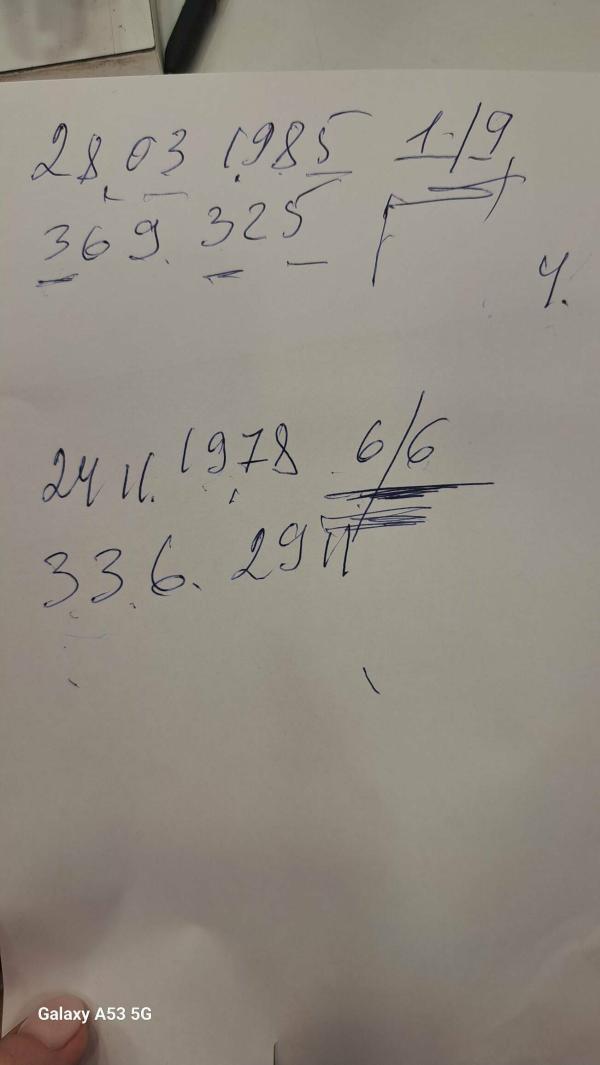 28.03 1985 1/9
369. 325
4.
24 11. 1978 6/6
336. 29 11
Galaxy A53 5G